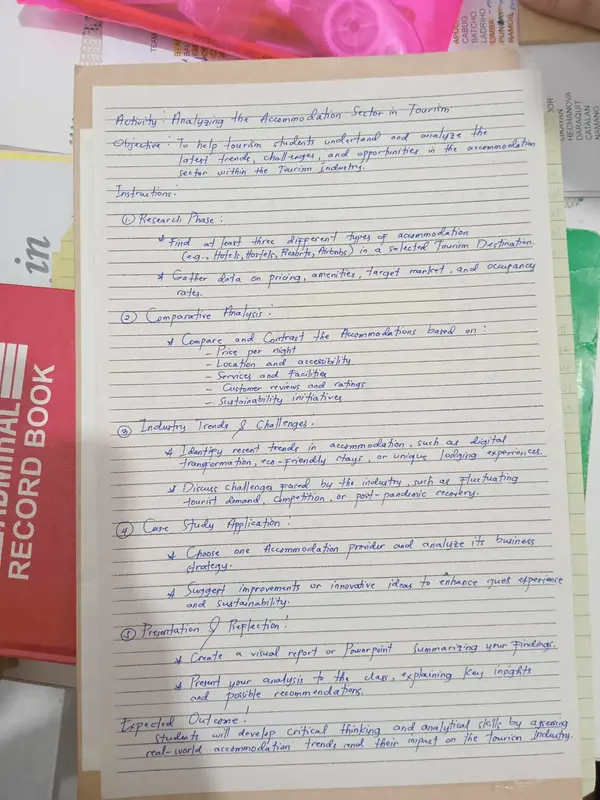 APUC
CABUG
BATCHO
LADRIHO
LIMBA
PUNAY
RAMOS
HECHANOVA
DARAGUIT
CATALAN
NAMANG
Activity: Analyzing the Accommodation Sector in Tourism
Objective: To help tourism students understand and analyze the
latest trends, challenges, and opportunities in the accommodation
sector within the Tourism industry.
Instructions:
① Research Phase:
* Find at least three different types of accommodation
(e.g., Hotels, Hostels, Resorts, Airbnbs) in a selected Tourism Destination.
* Gather data on pricing, amenities, target market, and occupancy
rates.
② Comparative Analysis:
* Compare and Contrast the Accommodations based on:
- Price per night
- Location and accessibility
- Services and Facilities
- Customer reviews and ratings
- Sustainability initiatives
③ Industry Trends & Challenges.
* Identify recent trends in accommodation, such as digital
transformation, eco-friendly stays, or unique lodging experiences.
* Discuss challenges faced by the industry, such as fluctuating
tourist demand, competition, or post-pandemic recovery.
④ Case Study Application:
* Choose one Accommodation provider and analyze its business
strategy.
* Suggest improvements or innovative ideas to enhance gues experience
and sustainability.
⑤ Presentation & Reflection!
* Create a visual report or Powerpoint summarizing your findings.
* Present your analysis to the class, explaining key insights
and possible recommendations.
Expected Outcome!
Students will develop critical thinking and analytical skills by assessing
real-world accommodation trends and their impact on the tourism Industry.
in
ADMIRAL
RECORD BOOK